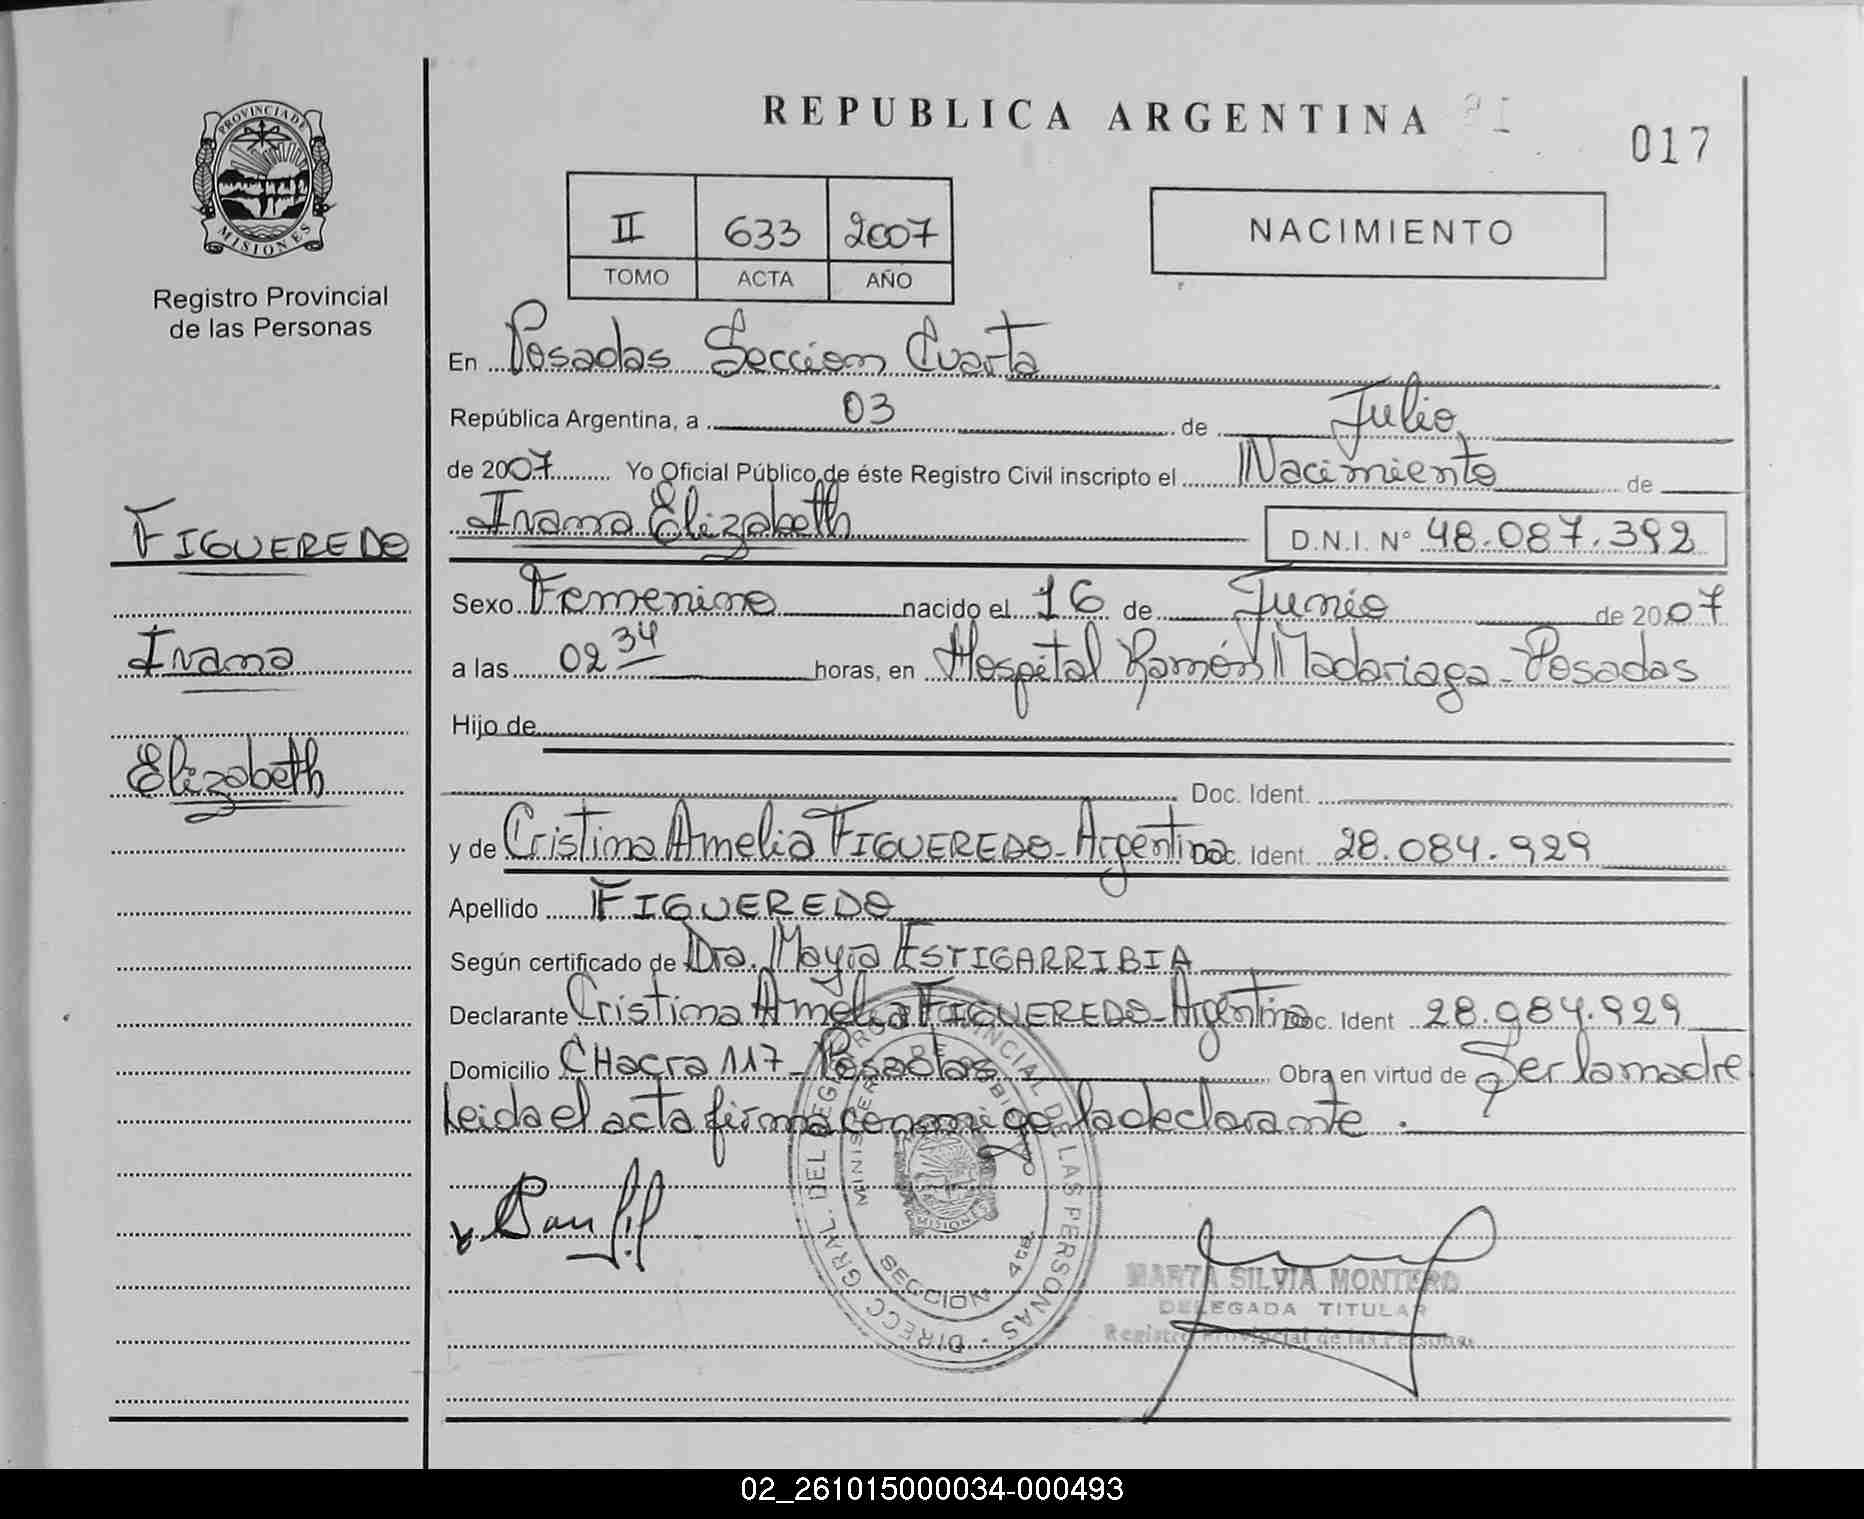 PROVINCIA DE
MISIONES
Registro Provincial
de las Personas
FIGUEREDO
Ivana
Elizabeth
REPUBLICA ARGENTINA
017
II 633 2007
TOMO ACTA AÑO
NACIMIENTO
En Posadas Seccion Cuarta
República Argentina, a 03 de Julio
de 2007 Yo Oficial Público de éste Registro Civil inscripto el Nacimiento de
Ivana Elizabeth D.N.I. N° 48.087.392
Sexo Femenino nacido el 16 de Junio de 2007
a las 02 34 horas, en Hospital Ramón Madariaga - Posadas
Hijo de
Doc. Ident.
y de Cristina Amelia FIGUEREDO - Argentina Doc. Ident. 28.084.929
Apellido FIGUEREDO
Según certificado de Dra. Mayra ESTIGARRIBIA
Declarante Cristina Amelia FIGUEREDO - Argentina Doc. Ident 28.084.929
Domicilio CHacra 117 - Posadas Obra en virtud de Ser la madre
Leida el acta firma conmigo la declarante.
DIRECC. GRAL. DEL REG. PROVINCIAL DE LAS PERSONAS
SECCION 4ta.
MISIONES
MARTA SILVIA MONTERO
DELEGADA TITULAR
Registro Provincial de las Personas
02_261015000034-000493